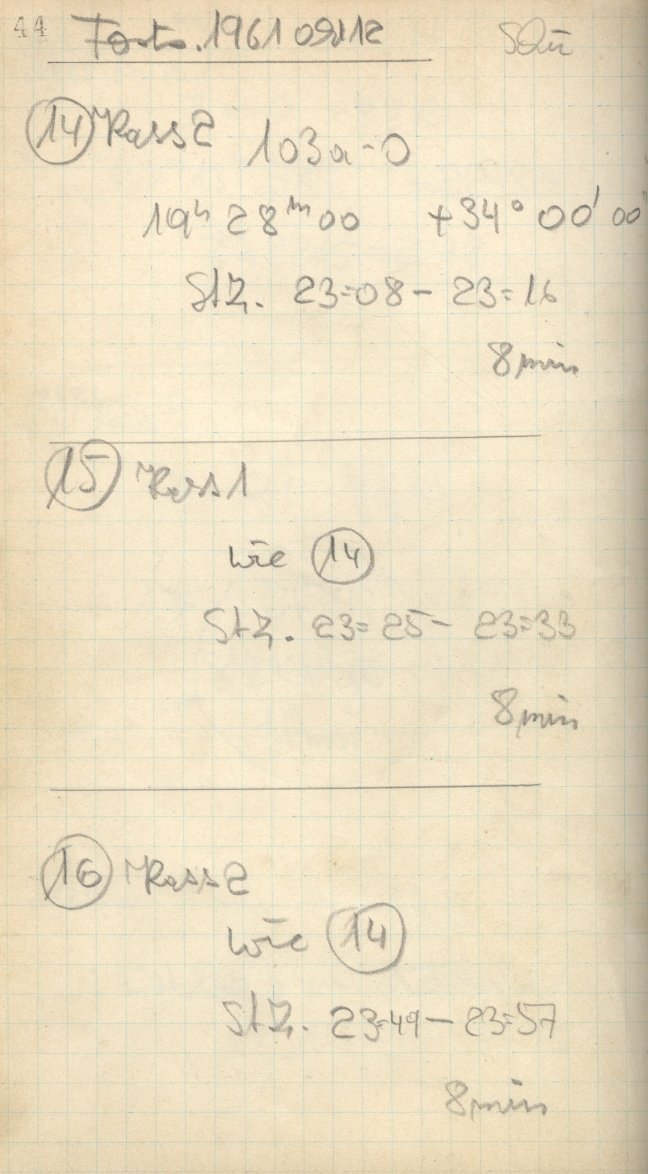 44 Forts. 1961 09 12
14 Kass 2 103a-0
19h 28m 00 +34° 00' 00"
StZ. 23=08 - 23=16
8 min
15 Kass 1
wie 14
StZ. 23=25 - 23=33
8 min
16 Kass 2
wie 14
StZ. 23=49 - 23=57
8 min